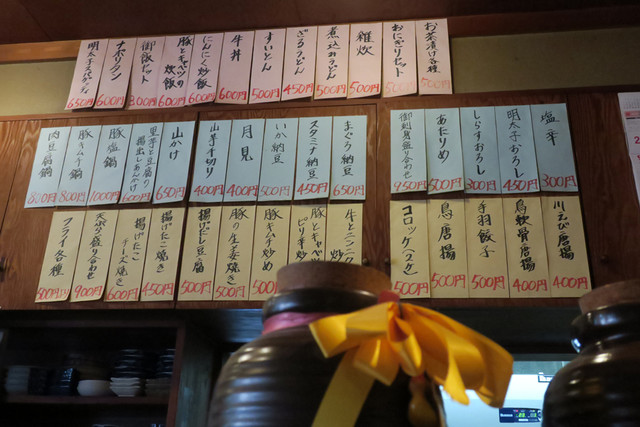 お茶漬け各種
500円
おにぎりセット
500円
雑炊
600円
煮込みうどん
500円
ざるうどん
450円
すいとん
500円
牛丼
600円
にんにく炒飯
600円
豚とキャベツ
の炊飯
600円
御飯セット
ナポリタン
600円
明太子スパゲティ
650円
塩辛
300円
明太子おろし
450円
しらすおろし
300円
あたりめ
500円
御刺身盛り合わせ
950円
まぐろ納豆
650円
スタミナ納豆
450円
いか納豆
500円
月見
400円
山芋千切り
400円
山かけ
650円
里芋と豆腐の
揚出しあんかけ
600円
豚塩鍋
1000円
豚キムチ鍋
800円
肉豆腐
800円
川えび唐揚
400円
鳥軟骨唐揚
400円
手羽餃子
500円
鳥唐揚
500円
コロッケ(2ヶ)
500円
牛とニンニク
豚とキャベツ
ピリ辛炒
豚キムチ炒め
500円
豚の生姜焼
500円
揚げだし豆腐
500円
揚げたこ焼き
450円
揚げたこ
チーズ焼き
600円
天ぷら盛り合わせ
900円
フライ各種
500円